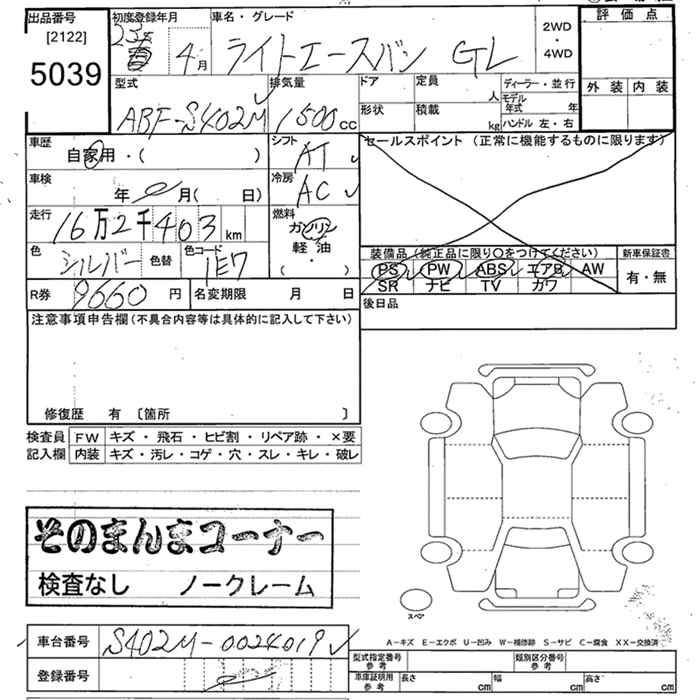 出品番号
[2122]
5039
初度登録年月
23年
4月
車名・グレード
ライトエースバン GL
2WD
・
4WD
評価点
外装 内装
型式
ABF-S402M
排気量
1500cc
ドア
定員
人
形状
積載
kg
ディーラー・並行
モデル年式 年
ハンドル 左・右
車歴
自家用・( )
シフト
AT
車検
年 月( 日)
冷房
AC
走行
16万2千403km
燃料
ガソリン
軽油
( ・ )
色
シルバー
色替
色コード
1E7
R券
9660円
名変期限 月 日
セールスポイント(正常に機能するものに限ります)
装備品(純正品に限り○をつけてください)
PS PW ABS エアB AW
SR ナビ TV カワ
新車保証書
有・無
後日品
注意事項申告欄(不具合内容等は具体的に記入して下さい)
修復歴 有 〔箇所 〕
検査員 FW キズ・飛石・ヒビ割・リペア跡・×要
記入欄 内装 キズ・汚レ・コゲ・穴・スレ・キレ・破レ
そのまんまコーナー
検査なし ノークレーム
スペア
A-キズ E-エクボ U-凹み W-補修跡 S-サビ C-腐食 XX-交換済
車台番号
S402M-0024019
登録番号
型式指定番号
参考
類別区分番号
参考
車庫証明用
参考
長さ cm 幅 cm 高さ cm